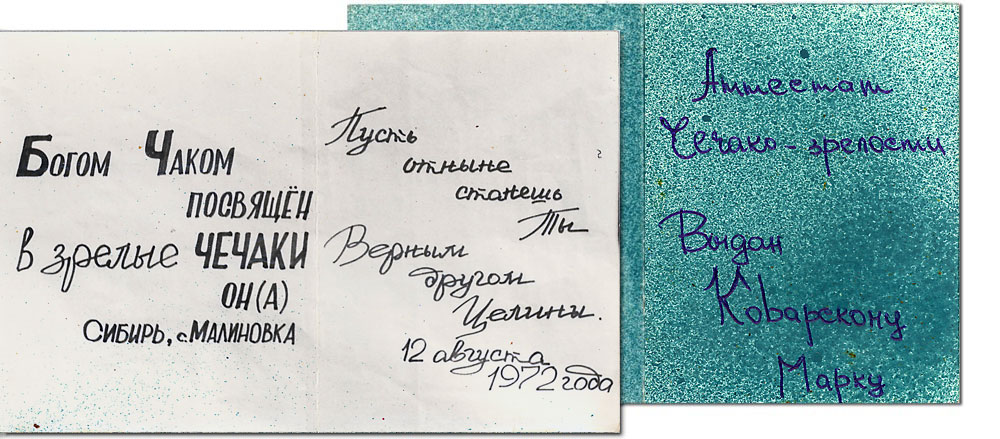 Богом Чаком
посвящён
в зрелые ЧЕЧАКИ
он(а)
Сибирь, с. Малиновка
Пусть
отныне
станешь
Ты
Верным
другом
Целины.
12 августа
1972 года
Аттестат
Чечако-зрелости
Выдан
Коварскому
Марку